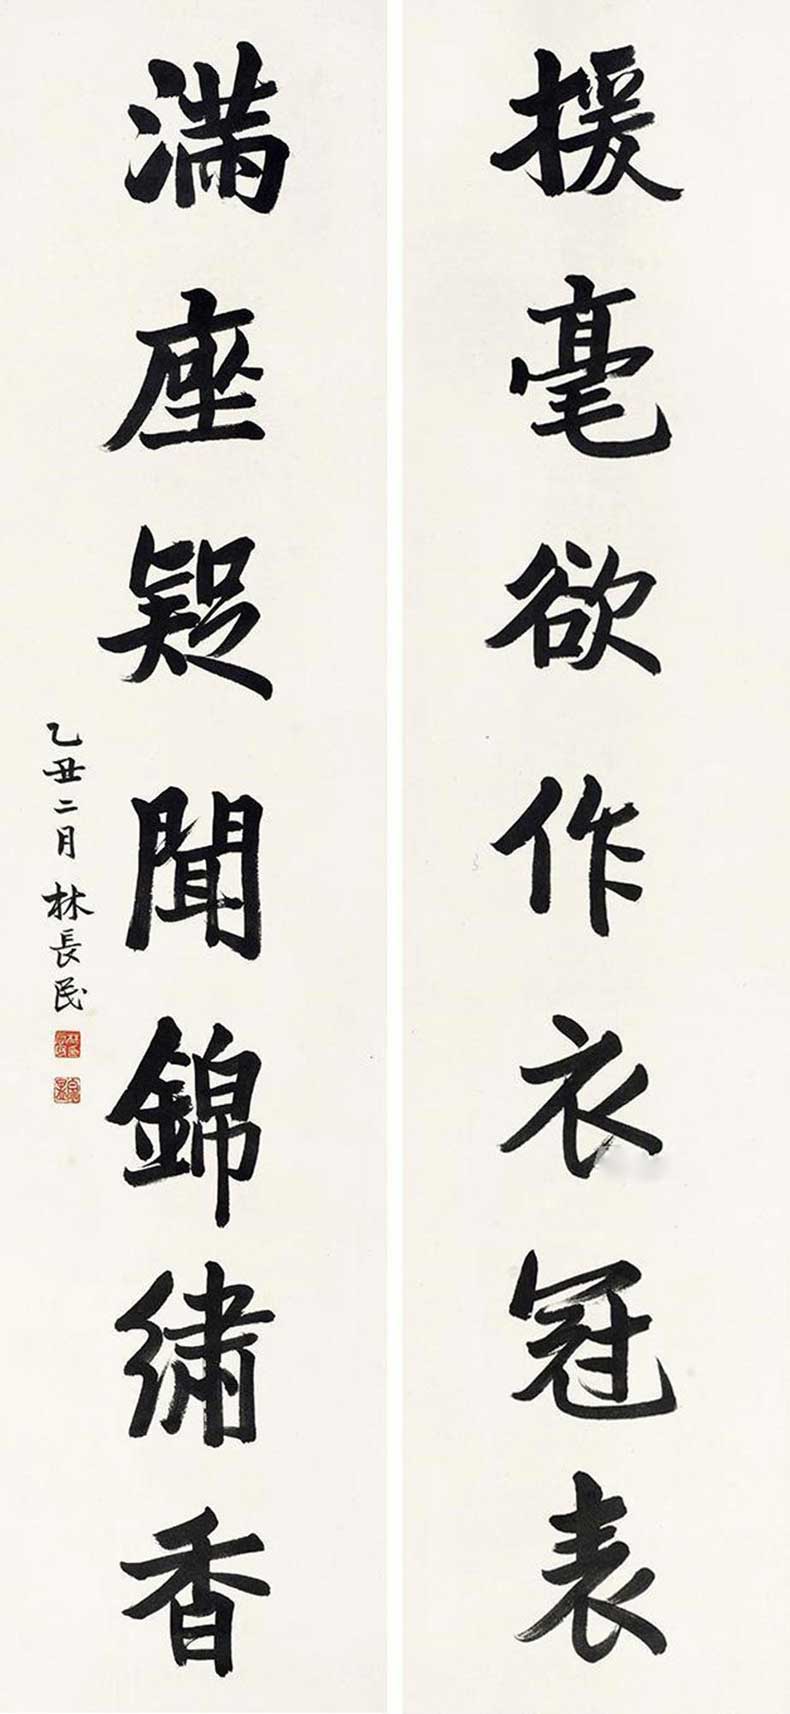 援毫欲作衣冠表
滿座疑聞錦繡香
乙丑二月林長民